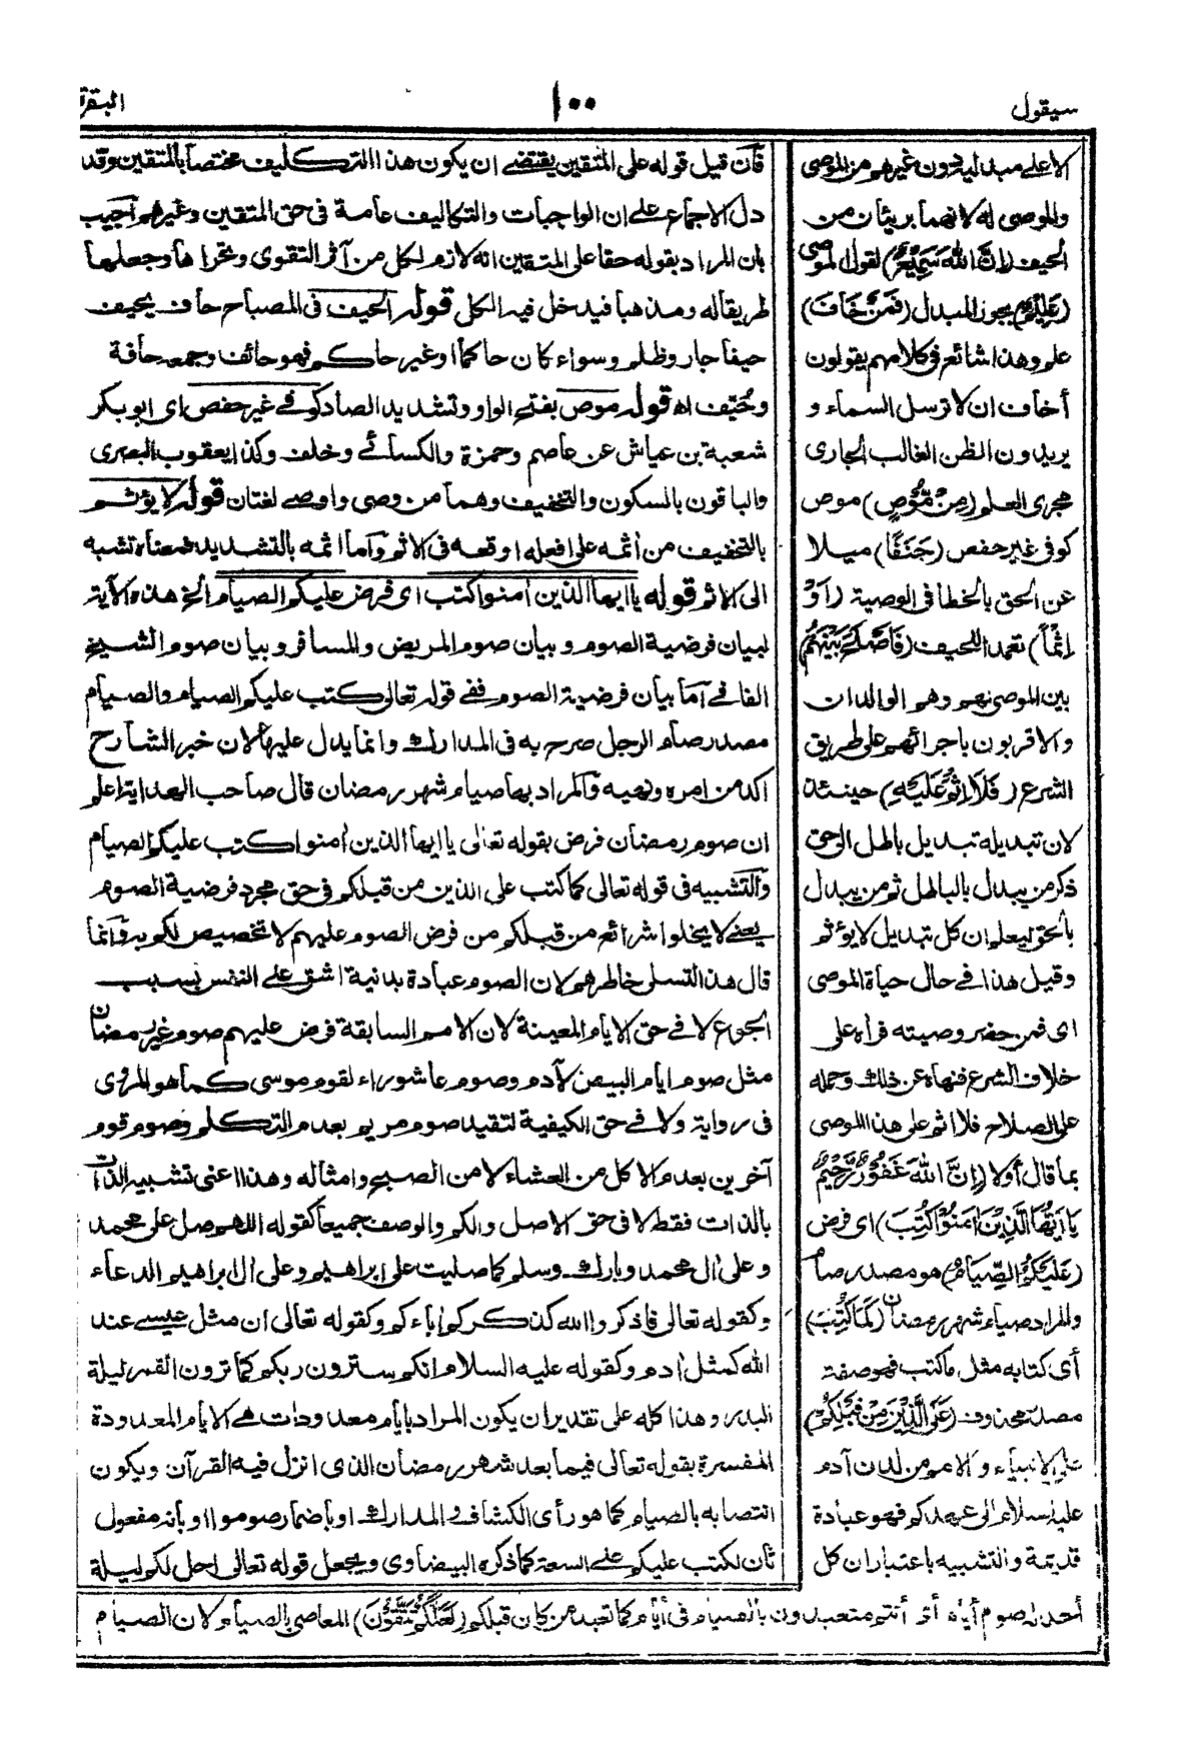 سيقول
١٠٠
البقرة
الا على مبدليه دون غيرهم من الموصى
والموصى له لانهما بريئان من
الحيف (إِنَّ اللّٰهَ سَمِيْعٌ) لقول الموصى
(عَلِيْمٌ) بجور المبدل (فَمَنْ خَافَ)
علم وهذا شائع فى كلامهم يقولون
أخاف ان لا ترسل السماء و
يريدون الظن الغالب الجارى
مجرى العلم (مِنْ مُّوْصٍ) موص
كوفى غير حفص (جَنَفًا) ميلا
عن الحق بالخطا فى الوصية (اَوْ
اِثْمًا) تعمد اللحيف (فَاَصْلَحَ بَيْنَهُمْ)
بين الموصى لهم وهم الوالدان
والاقربون باجرائهم على طريق
الشرع (فَلَا اِثْمَ عَلَيْهِ) حينئذ
لان تبديله تبديل باطل الى حق
ذكر من يبدل بالباطل ثم من يبدل
بالحق ليعلم ان كل تبديل لا يؤثم
وقيل هذا فى حال حياة الموصى
اى فمن حضر وصيته فرآه على
خلاف الشرع فنهاه عن ذلك وحمله
على الصلاح فلا اثم على هذا الموصى
بما قال أولا (إِنَّ اللّٰهَ غَفُوْرٌ رَّحِيْمٌ
يٰاَيُّهَا الَّذِيْنَ اٰمَنُوْا كُتِبَ) اى فرض
(عَلَيْكُمُ الصِّيَامُ) هو مصدر صام
والمراد صيام شهر رمضان (كَمَا كُتِبَ)
أى كتابة مثل ما كتب فهو صفة
مصدر محذوف (عَلَى الَّذِيْنَ مِنْ قَبْلِكُمْ)
على الانبياء والامم من لدن آدم
عليه السلام الى عهدكم فهو عبادة
قديمة والتشبيه باعتبار ان كل
أحد له صوم أيام أى أنتم متعبدون بالصيام فى أيام كما تعبد من كان قبلكم (لَعَلَّكُمْ تَتَّقُوْنَ) المعاصى بالصيام لان الصيام
فان قيل قوله على المتقين يقتضى ان يكون هذا التكليف مختصا بالمتقين وقد
دل الاجماع على ان الواجبات والتكاليف عامة فى حق المتقين وغيرهم اجيب
بان المراد بقوله حقا على المتقين انه لازم لكل من آثر التقوى وتحراها وجعلها
طريقا له ومذهبا فيدخل فيه الكل قوله الحيف فى المصباح حاف يحيف
حيفا جار وظلم وسواء كان حاكما او غير حاكم فهو حائف وجمعه حافة
وحُيّف اه قوله موص بفتح الواو وتشديد الصاد كوفى غير حفص اى ابو بكر
شعبة بن عياش عن عاصم وحمزة والكسائى وخلف وكذا يعقوب البصرى
والباقون بالسكون والتخفيف وهما من وصى واوصى لغتان قوله لا يؤثم
بالتخفيف من أثمه على افعله اوقعه فى الاثم وآما اثمه بالتشديد فمعناه نسبه
الى الاثم قوله يا ايها الذين اٰمنوا كتب اى فرض عليكم الصيام الخ هذه الآية
لبيان فرضية الصوم وبيان صوم المريض والمسافر وبيان صوم الشيخ
الفانى آما بيان فرضية الصوم ففى قوله تعالى كتب عليكم الصيام والصيام
مصدر صام الرجل صرح به فى المدارك وانما يدل عليها لان خبر الشارح
اكد من امره ونهيه وآلمراد بها صيام شهر رمضان قال صاحب الهداية اعلم
ان صوم رمضان فرض بقوله تعالى يا ايها الذين اٰمنوا كتب عليكم الصيام
وآلتشبيه فى قوله تعالى كما كتب على الذين من قبلكم فى حق مجرد فرضية الصوم
يعنى لا يخلوا شرائع من قبلكم من فرض الصوم عليهم لا تخصيص لكم به وآنما
قال هذا التسلى خاطرهم لان الصوم عبادة بدنية اشق على النفس بسبب
الجوع لا فى حق الايام المعينة لان الامم السابقة فرض عليهم صوم غير رمضان
مثل صوم ايام البيض لآدم وصوم عاشوراء لقوم موسى كما هو المروى
فى رواية ولا فى حق الكيفية لتقيد صوم مريم بعدم التكلم وصوم قوم
آخرين بعدم الاكل من العشاء لا من الصبح وامثاله وهذا اعنى تشبيه الذات
بالذات فقط لا فى حق الاصل والكم والوصف جميعا كقوله اللهم صل على محمد
وعلى اٰل محمد وبارك وسلم كما صليت على ابراهيم وعلى اٰل ابراهيم الدعاء
وكقوله تعالى فاذكروا الله كذكركم اٰباءكم وكقوله تعالى ان مثل عيسى عند
الله كمثل اٰدم وكقوله عليه السلام انكم سترون ربكم كما ترون القمر ليلة
البدر وهذا كله على تقدير ان يكون المراد بايام معدودات هى الايام المعدودة
المفسرة بقوله تعالى فيما بعد شهر رمضان الذى انزل فيه القرآن ويكون
انتصابه بالصيام كما هو رأى الكشاف والمدارك او باضمار صوموا او بانه مفعول
ثان لكتب عليكم على السعة كما ذكره البيضاوى ويجعل قوله تعالى احل لكم ليلة